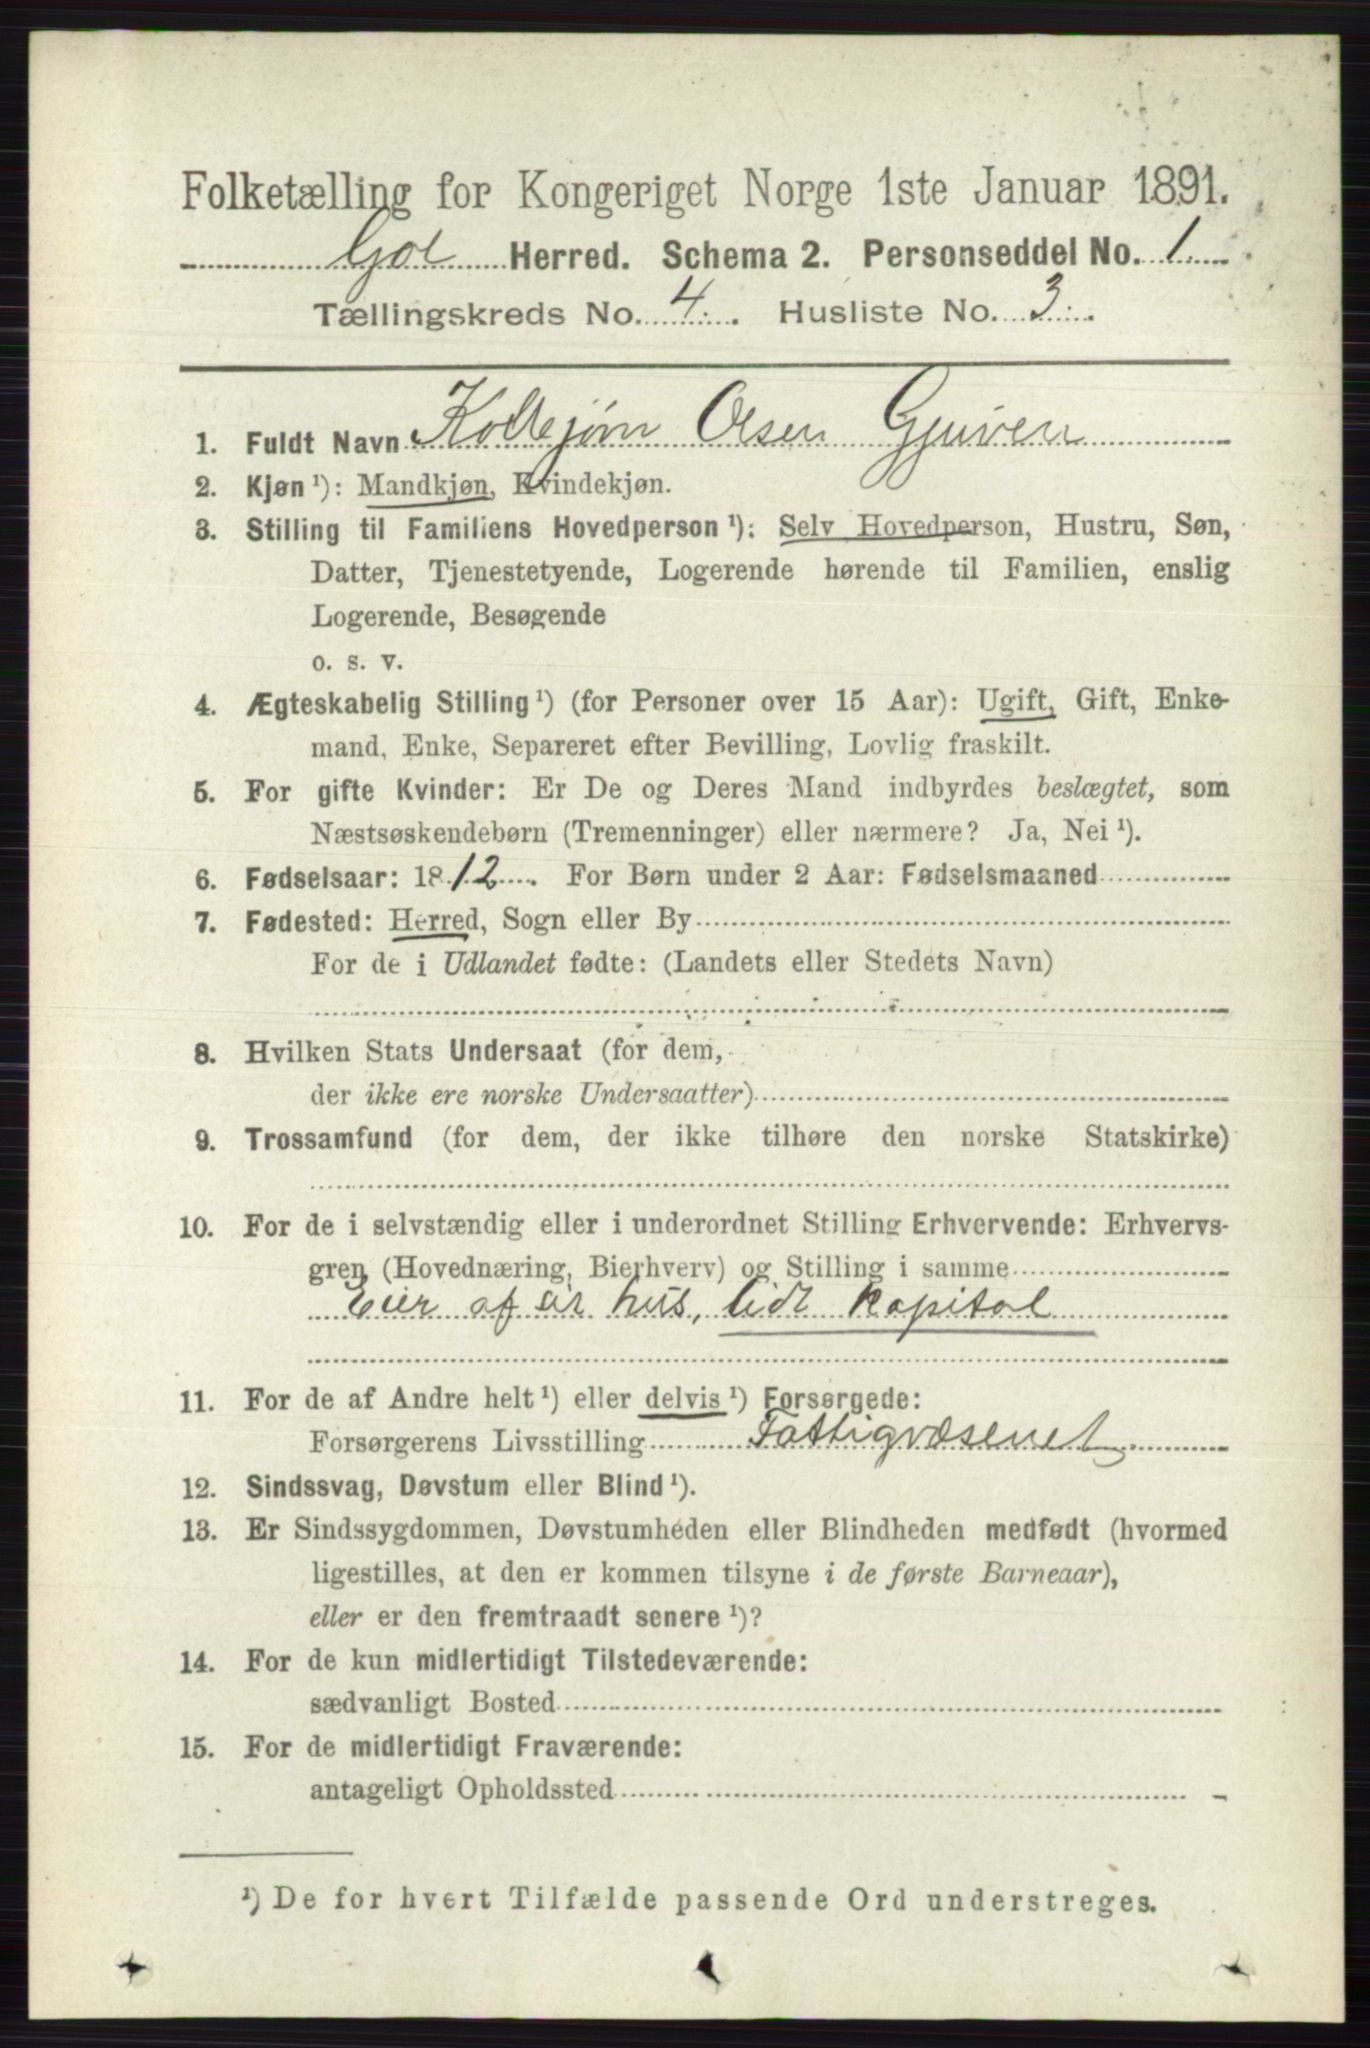 Folketælling for Kongeriget Norge 1ste Januar 1891.
Gol Herred. Schema 2. Personseddel No. 1
Tællingskreds No. 4. Husliste No. 3.
1. Fuldt Navn Kolbjørn Olsen Gjuven
2. Kjøn ¹): Mandkjøn, Kvindekjøn.
3. Stilling til Familiens Hovedperson ¹): Selv Hovedperson, Hustru, Søn,
Datter, Tjenestetyende, Logerende hørende til Familien, enslig
Logerende, Besøgende
o. s. v.
4. Ægteskabelig Stilling ¹) (for Personer over 15 Aar): Ugift, Gift, Enke-
mand, Enke, Separeret efter Bevilling, Lovlig fraskilt.
5. For gifte Kvinder: Er De og Deres Mand indbyrdes beslægtet, som
Næstsøskendebørn (Tremenninger) eller nærmere? Ja, Nei ¹).
6. Fødselsaar: 1812. For Børn under 2 Aar: Fødselsmaaned
7. Fødested: Herred, Sogn eller By
For de i Udlandet fødte: (Landets eller Stedets Navn)
8. Hvilken Stats Undersaat (for dem,
der ikke ere norske Undersaatter)
9. Trossamfund (for dem, der ikke tilhøre den norske Statskirke)
10. For de i selvstændig eller i underordnet Stilling Erhvervende: Erhvervs-
gren (Hovednæring, Bierhverv) og Stilling i samme
Eier af et hus, lidt Kapital
11. For de af Andre helt ¹) eller delvis ¹) Forsørgede:
Forsørgerens Livsstilling Fattigvæsenet
12. Sindssvag, Døvstum eller Blind ¹).
13. Er Sindssygdommen, Døvstumheden eller Blindheden medfødt (hvormed
ligestilles, at den er kommen tilsyne i de første Barneaar),
eller er den fremtraadt senere ¹)?
14. For de kun midlertidigt Tilstedeværende:
sædvanligt Bosted
15. For de midlertidigt Fraværende:
antageligt Opholdssted
¹) De for hvert Tilfælde passende Ord understreges.